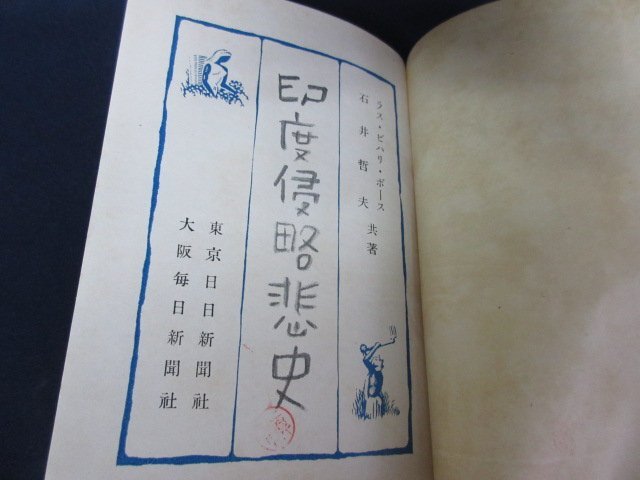 ラス・ビハリ・ボース
石井哲夫 共著
印度侵略悲史
東京日日新聞社
大阪毎日新聞社